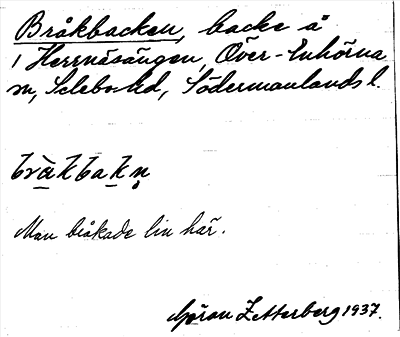 Bråkbacken, backe å
1 Herrnäsängen, Över-Enhörna
sn, Selebo hd, Södermanlands l.
bràkbakn̥
Man bråkade lin här.
Göran Zetterberg 1937.